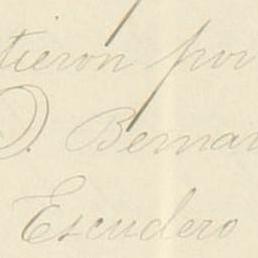 tieron por
D. Berna
Escudero